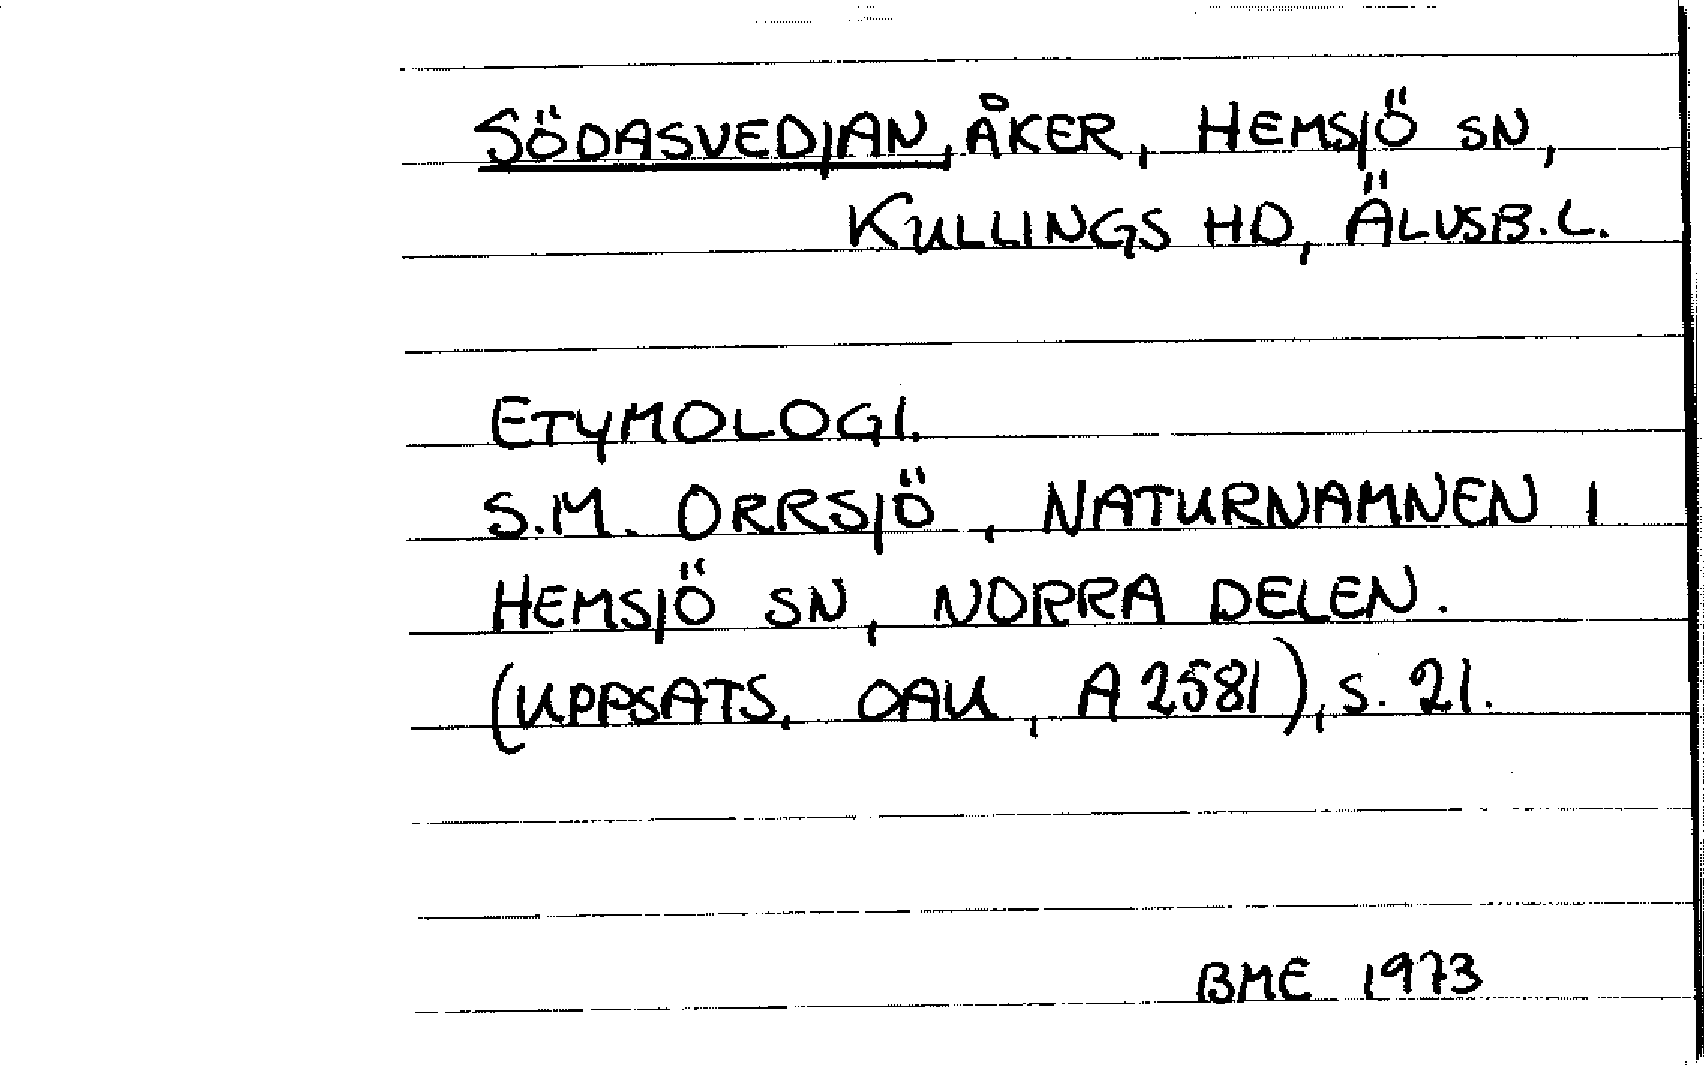 SÖDASVEDJAN, ÅKER, HEMSJÖ SN,
KULLINGS HD, ÄLVSB. L.
ETYMOLOGI.
S.M. ORRSJÖ, NATURNAMNEN I
HEMSJÖ SN, NORRA DELEN.
(UPPSATS, OAU, A 2581), S. 21.
BME 1973